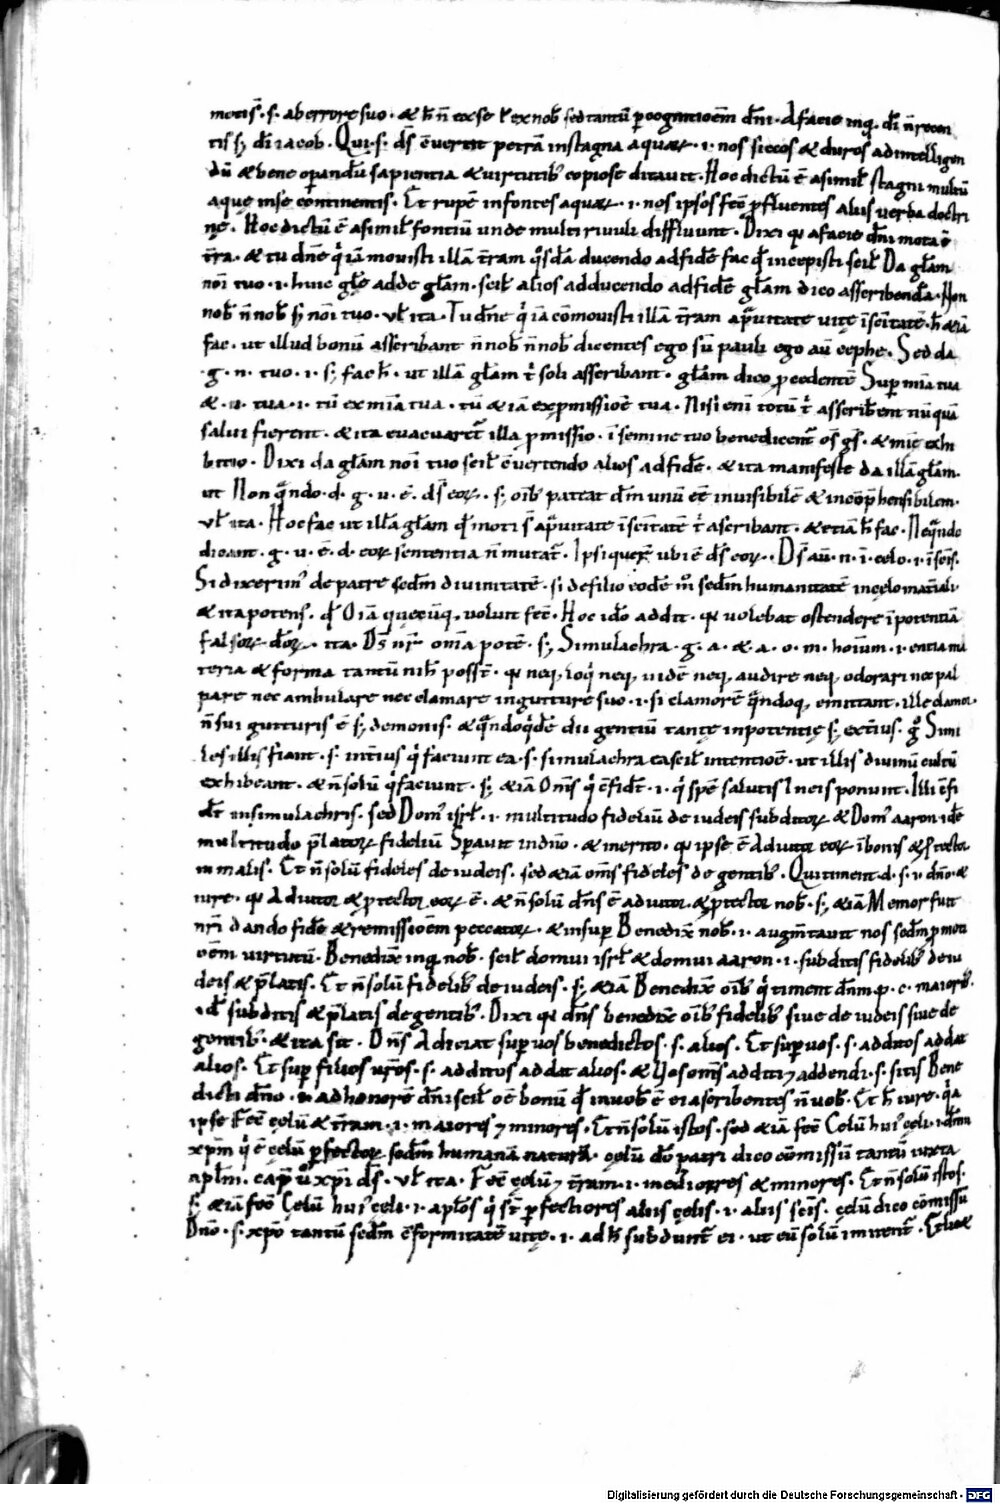 motis̄ · s̄ · ab errore suo · & h̄ n̄ ex se ł ex nob̄ sed tantū ꝑ cognitioēm dn̄i · A facie inq · dī n̄ recen
tis s; dī iacob · Qui · s · ds̄ ē vertit petrā in stagna aquaꝝ · i · nos siccos & duros ad intelligen
dū & bene oꝑandū sapientia & virtutib; copiose ditavit · Hoc dictū ē a simil̄ stagni multū
aquę in se continentis · Et rupē in fontes aquaꝝ · i · nos ipsos fec̄ ꝓfluentes aliis verba doctri
nę · Hoc dictū ē a simil̄ fontiū unde multi rivuli diffluunt · Dixi qđ a facie dn̄i mota ē
t̄ra · & tu dn̄e q̇ iā movisti illā t̄ram q̊sdā ducendo ad fidē fac qđ incepisti scil̄ Da gl̄am
nōi tuo · i · huic gl̄ę adde gl̄am · scil̄ alios adducendo ad fidē gl̄am dico asscribendā · Non
nob̄ n̄ nob̄ s; nōi tuo · vl̄ ita · Tu dn̄e q̇ iā cōmovisti illā t̄ram a pravitate vitę ī scītatē h̄ & iā
fac · ut illud bonū asscribant n̄ nob̄ n̄ nob̄ dicentes ego sū pauli ego aū cephe · Sed da
· g · n · tuo · i · s; fac h̄ · ut illā gl̄am t̄ soli asscribant · gl̄am dico ꝓcedentē Sup̄ mīa tua
& · v · tua · i · tū ex mīa tua · tū & iā ex ꝓmissiōe tua · Nisi enī totū t̄ asscriberent nūquā
salvi fierent · & ita evacuaret̄ illa ꝓmissio · ī semine tuo benedicent̄ os̄ gs̄ · & mīę exhi
bitio · Dixi da gl̄am nōi tuo scil̄ ēvertendo alios ad fidē · & ita manifeste da illā gl̄am ·
ut Non qn̄do · d · g · v · ē · ds̄ eoꝝ · s; oīb; pateat dm̄ unū eē invisibilē & incōp̄hensibilem ·
vl̄ ita · Hoc fac ut illā gl̄am qđ moti s̄ a pravitate ī scītatē t̄ ascribant · & etiā h̄ fac · Ne qn̄do
dicant · g · v · ē · d · eoꝝ sententia n̄ mutat̄ · Ipsi querent ubi ē ds̄ eoꝝ · Ds̄ aū · n · ī · celo · i · ī scīs ·
Si dixerim; de patre sedm̄ divinitatē · si de filio eodē m̊ sedm̄ humanitatē in celo mat̄iali
& ita potens · qđ Oīa quecūq; voluit fec̄ · Hoc idō addit · qđ volebat ostendere īpotentiā
falsoꝝ dōꝝ · ita · Ds̄ nr̄ omīa potē · s; Simulachra · g · a · & · a · o · m · hoīum · i · entia ma
teria & forma tantū nih̄ possт̄ · qđ neq; loq̇ neq; vidē neq; audire neq; odorari nec pal
pare nec ambulare nec clamare in gutture suo · i · si clamorē qn̄doq; emittant · ille clamor
n̄ sui gutturis ē s; demonis · & qn̄doq̇dē dii gentiū tantę inpotentię s; ex̄tius · g̊ Simi
les illis fiant · s · int̄ius q̇ faciunt ea · s · simulachra ea scil̄ intentiōe · ut illis divinū cultū
exhibeant · & n̄ solū q̇ faciunt · s; & iā Omīs q̇ cfīdt̄ · i · q̇ spē salutis In eis ponunt · Illi cfī
dt̄ in simulachris · sed Dom; isrl̄ · i · multitudo fideliū de iudeis subditoꝝ & Dom; aaron idē
multitudo p̄latoꝝ fideliū Sꝑavit in dn̄o · & merito · qđ ipse ē Adiutor eoꝝ ī bonis & ꝓtector
in malis · Et n̄ solū fideles de iudeis · sed & iā om̄s fideles de gentib; · Qui timent · d · s · i · dn̄o · &
iure · qđ Adiutor & ꝓtector eoꝝ ē · & n̄ solū dn̄s ē adiutor & ꝓtector nob̄ · s; & iā Memor fuit
nr̄i dando fidē & remissiōem peccatoꝝ · & insup̄ Benedix̄ nob̄ · i · augm̄tavit nos sedm̄ ꝓmoti
oēm virtutū · Benedix̄ inq nob̄ · scil̄ domui isrl̄ & domui aaron · i · subditis fidelib; de iu
deis & p̄latis · Et n̄ solū fidelib; de iudeis · s; & iā Benedix̄ oīb; q̇ timent dn̄m · p · c · maiorib;
· id̄ subditis & p̄latis de gentib; · Dixi qđ dn̄s benedix̄ oīb; fidelib; sive de iudeis sive de
gentib; · & ita sit · Dn̄s Adiciat sup̄ vos benedictos · s · alios · Et sup̄ vos · s · additos addat
alios · Et sup̄ filios vr̄os · s · additos addat alios · & Vos omīs additi ⁊ addendi · s · sitis Bene
dicti dn̄o · i · ad honorē dn̄i scil̄ oē bonū qđ in vob̄ ē ei ascribentes n̄ vob̄ · Et h̄ iure · q̇a
ipse Fec̄ cęlū & t̄ram · i · maiores ⁊ minores · Et n̄ solū istos · sed & iā fec̄ Celū hui; cęli · i · dn̄m
xp̄m q̇ ē cęlū ꝑfectoꝝ sedm̄ humanā naturā · cęlū dō patri dico cōmissū tantū iuxta
apl̄m · cap̄ v̊ xp̄i ds̄ · vl̄ ita · Fec̄ cęlū ⁊ t̄ram · i · mediocres & minores · Et n̄ solū istos ·
s; & iā fec̄ Cęlū hui; cęli · i · apl̄os q̇ st̄ ꝑfectiores aliis cęlis · i · aliis scīs · cęlū dico cōmissū
Dn̄o · s · xp̄o tantū sedm̄ cformitatē vitę · i · ad h̄ subdunt̄ ei · ut eū solū imitent̄ · Et hoc